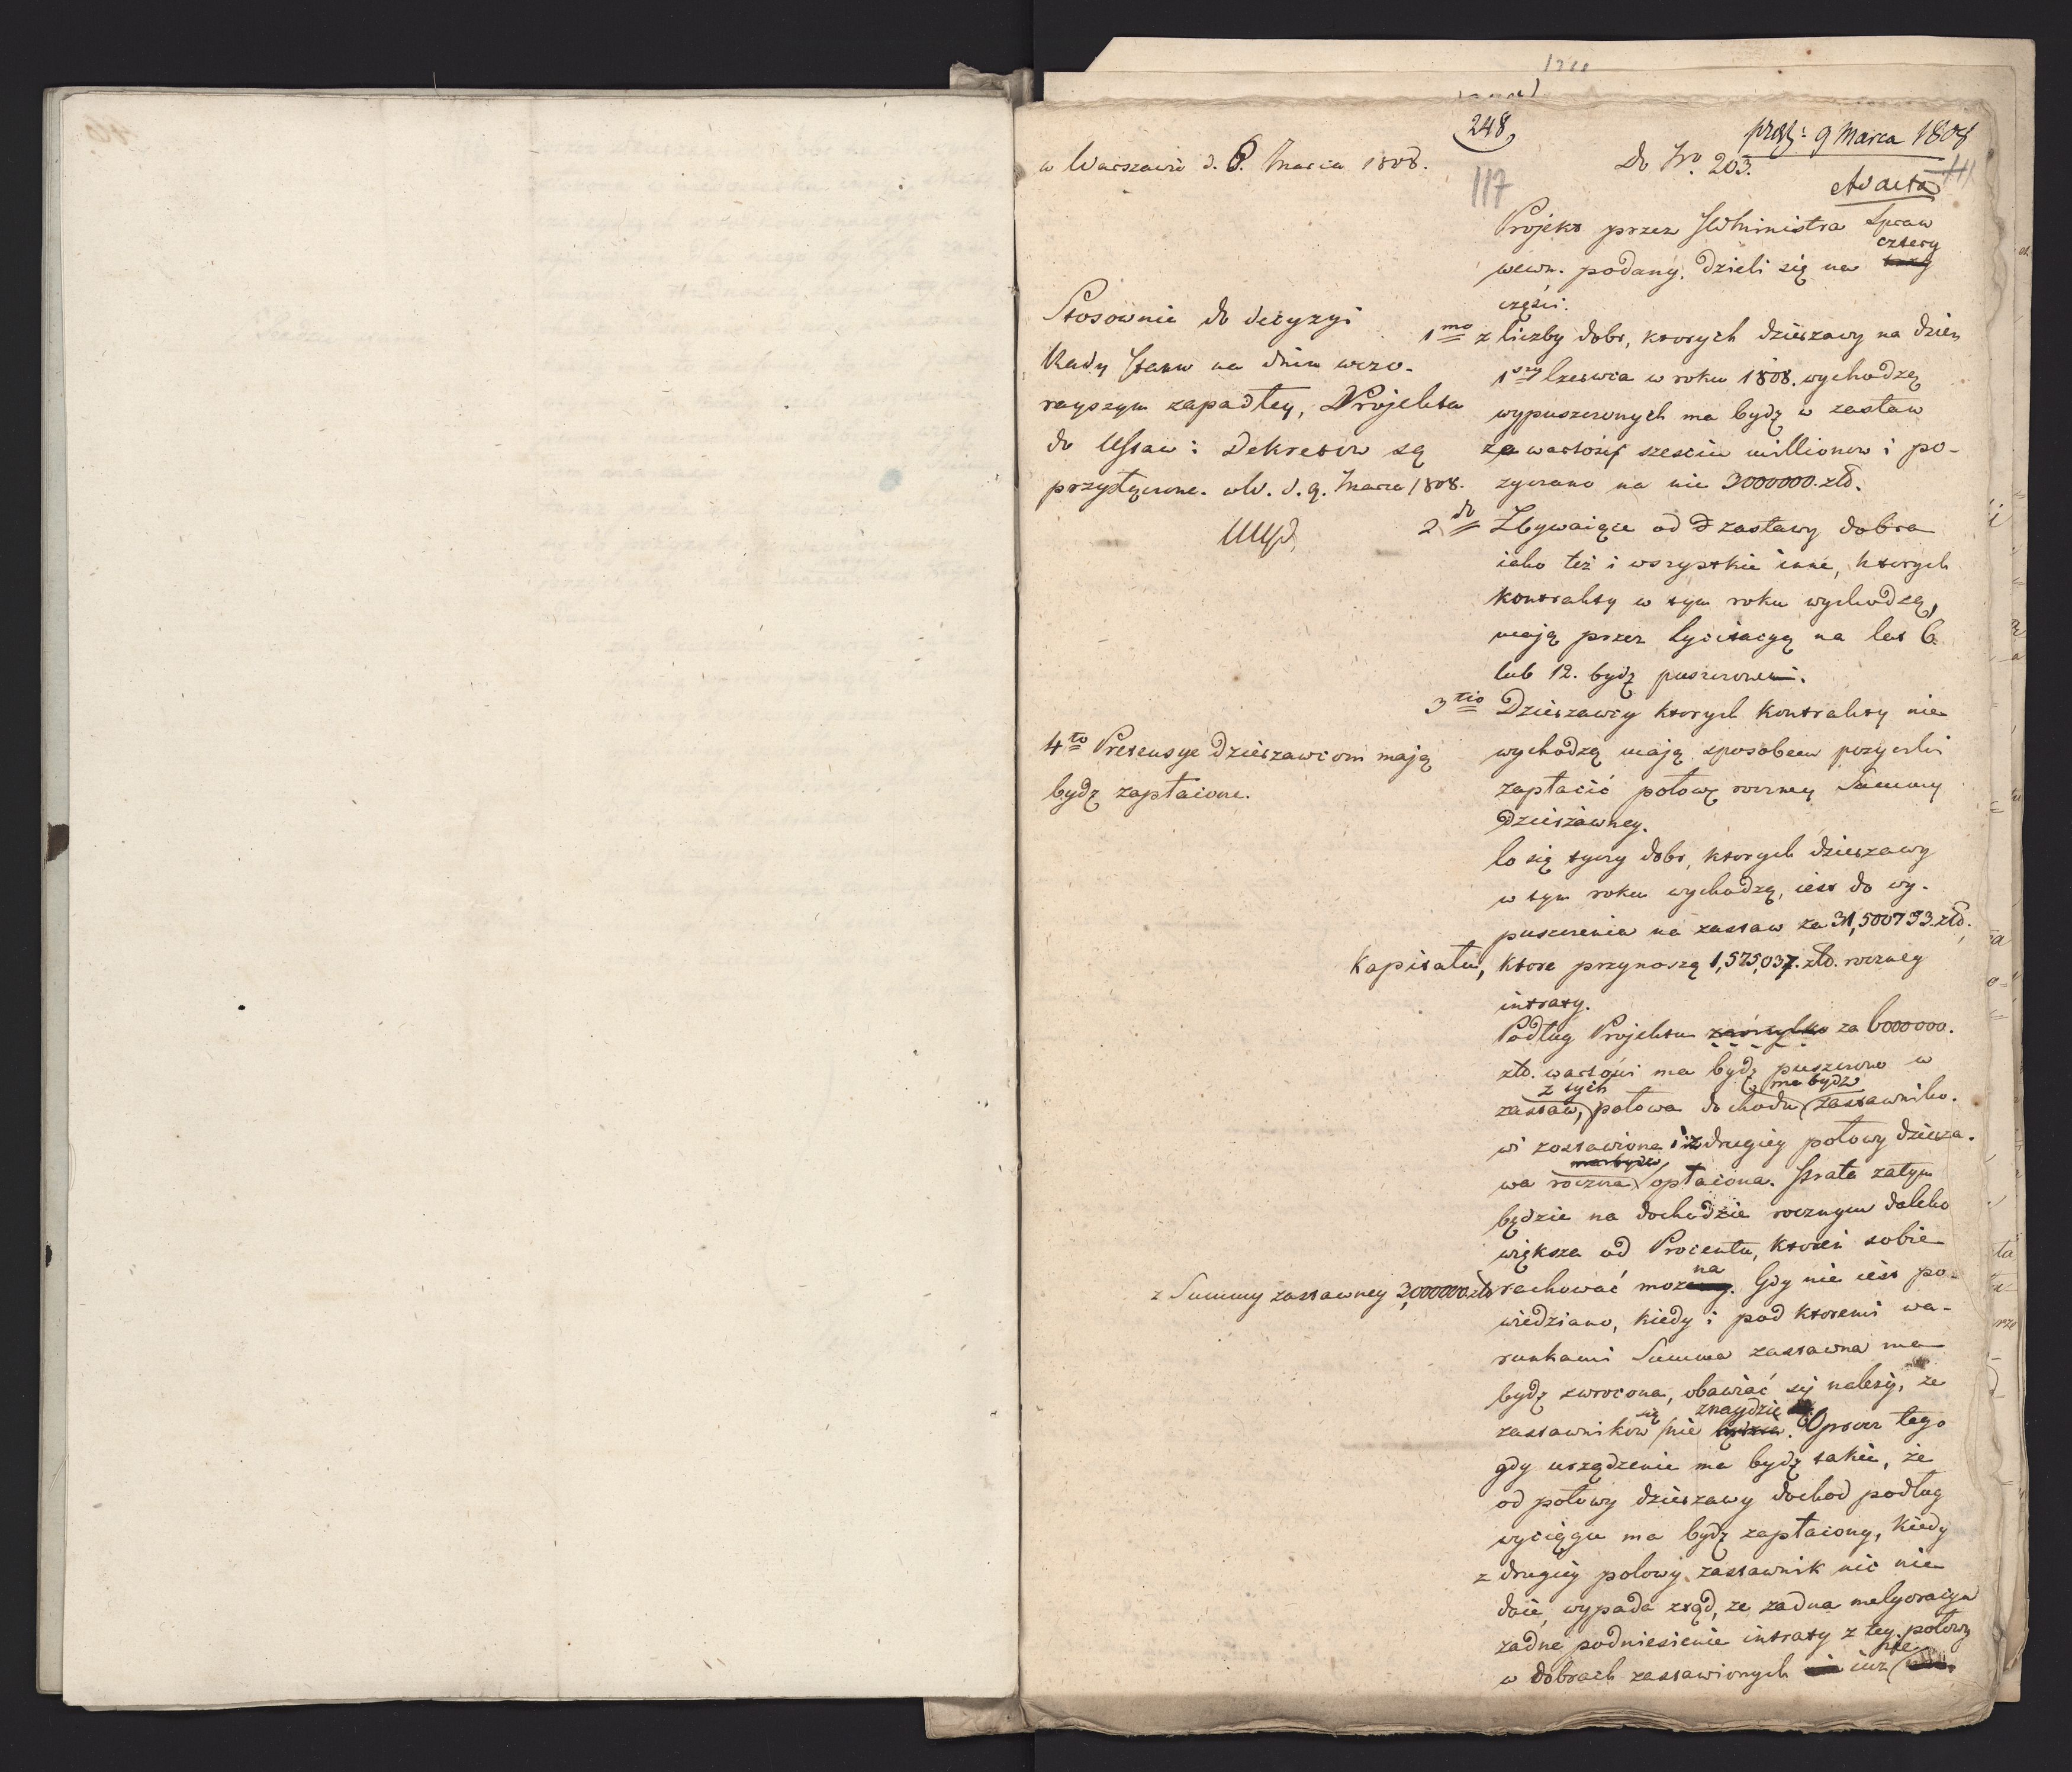 248
117
w Warszawie d. 8. Marca 1808.
Do Nro. 203.
9 Marca 1808
Ad acta
Stosownie do decyzyi
Rady Stanu na dniu wczo-
rayszym zapadłey, Projekta
do Ustaw i Dekretow są
przyłączone. d. 9. Marca 1808.
4to Pretensye dzierzawcom mają
bydź zapłacone.
Projekt przez JWMinistra Spraw
wewn. podany, dzieli się na cztery
części.
1mo z liczby dobr, ktorych dzierzawy na dzień
1szy Czerwca w roku 1808. wychodzą
wypuszczonych ma bydź w zastaw
za wartość sześciu millionow i po-
zyczano na nie 3000000. złł.
2do Zbywaiące od zastawy dobra
iako też i wszystkie inne, ktorych
kontrakty w tym roku wychodzą,
mają przez Lycitacyą na lat 6
lub 12. bydź puszczone.
3tio Dzierzawcy ktorych kontrakty nie
wychodzą mają sposobem pożyczki
zapłacić połowę roczney Summy
dzierżawney.
Co się tyczy dobr, ktorych dzierzawy
w tym roku wychodzą, iest do wy-
puszczenia na zastaw za 31,500793. złł.
Kapitału, ktore przynoszą 1,575,037. złł. roczney
intraty.
Podług Projektu za 6000000.
złł. wartości ma bydź puszczone w
zastaw, z tych połowa dochodu ma bydź zastawniko-
wi zostawiona i z drugiey połowy dzierza-
wa roczna opłacona. Strata zatym
będzie na dochodzie rocznym daleko
większa od Procentu, ktoren sobie
z Summy zastawney 3,000000. złł rachować można. Gdy nie iest po-
wiedziano, kiedy i pod ktoremi wa-
runkami Summa zastawna ma
bydź zwrocona, obawiać się należy, że
zastawnikow się nie znaydzie. Oprocz tego
gdy urządzenie ma bydź takie, że
od połowy dzierzawy dochod podług
wyciągu ma bydź zapłacony, kiedy
z drugiey połowy zastawnik nic nie
daie, wypada ztąd, że żadna melyoracya
żadne podniesienie intraty z tey połowy
w dobrach zastawionych iuż nie